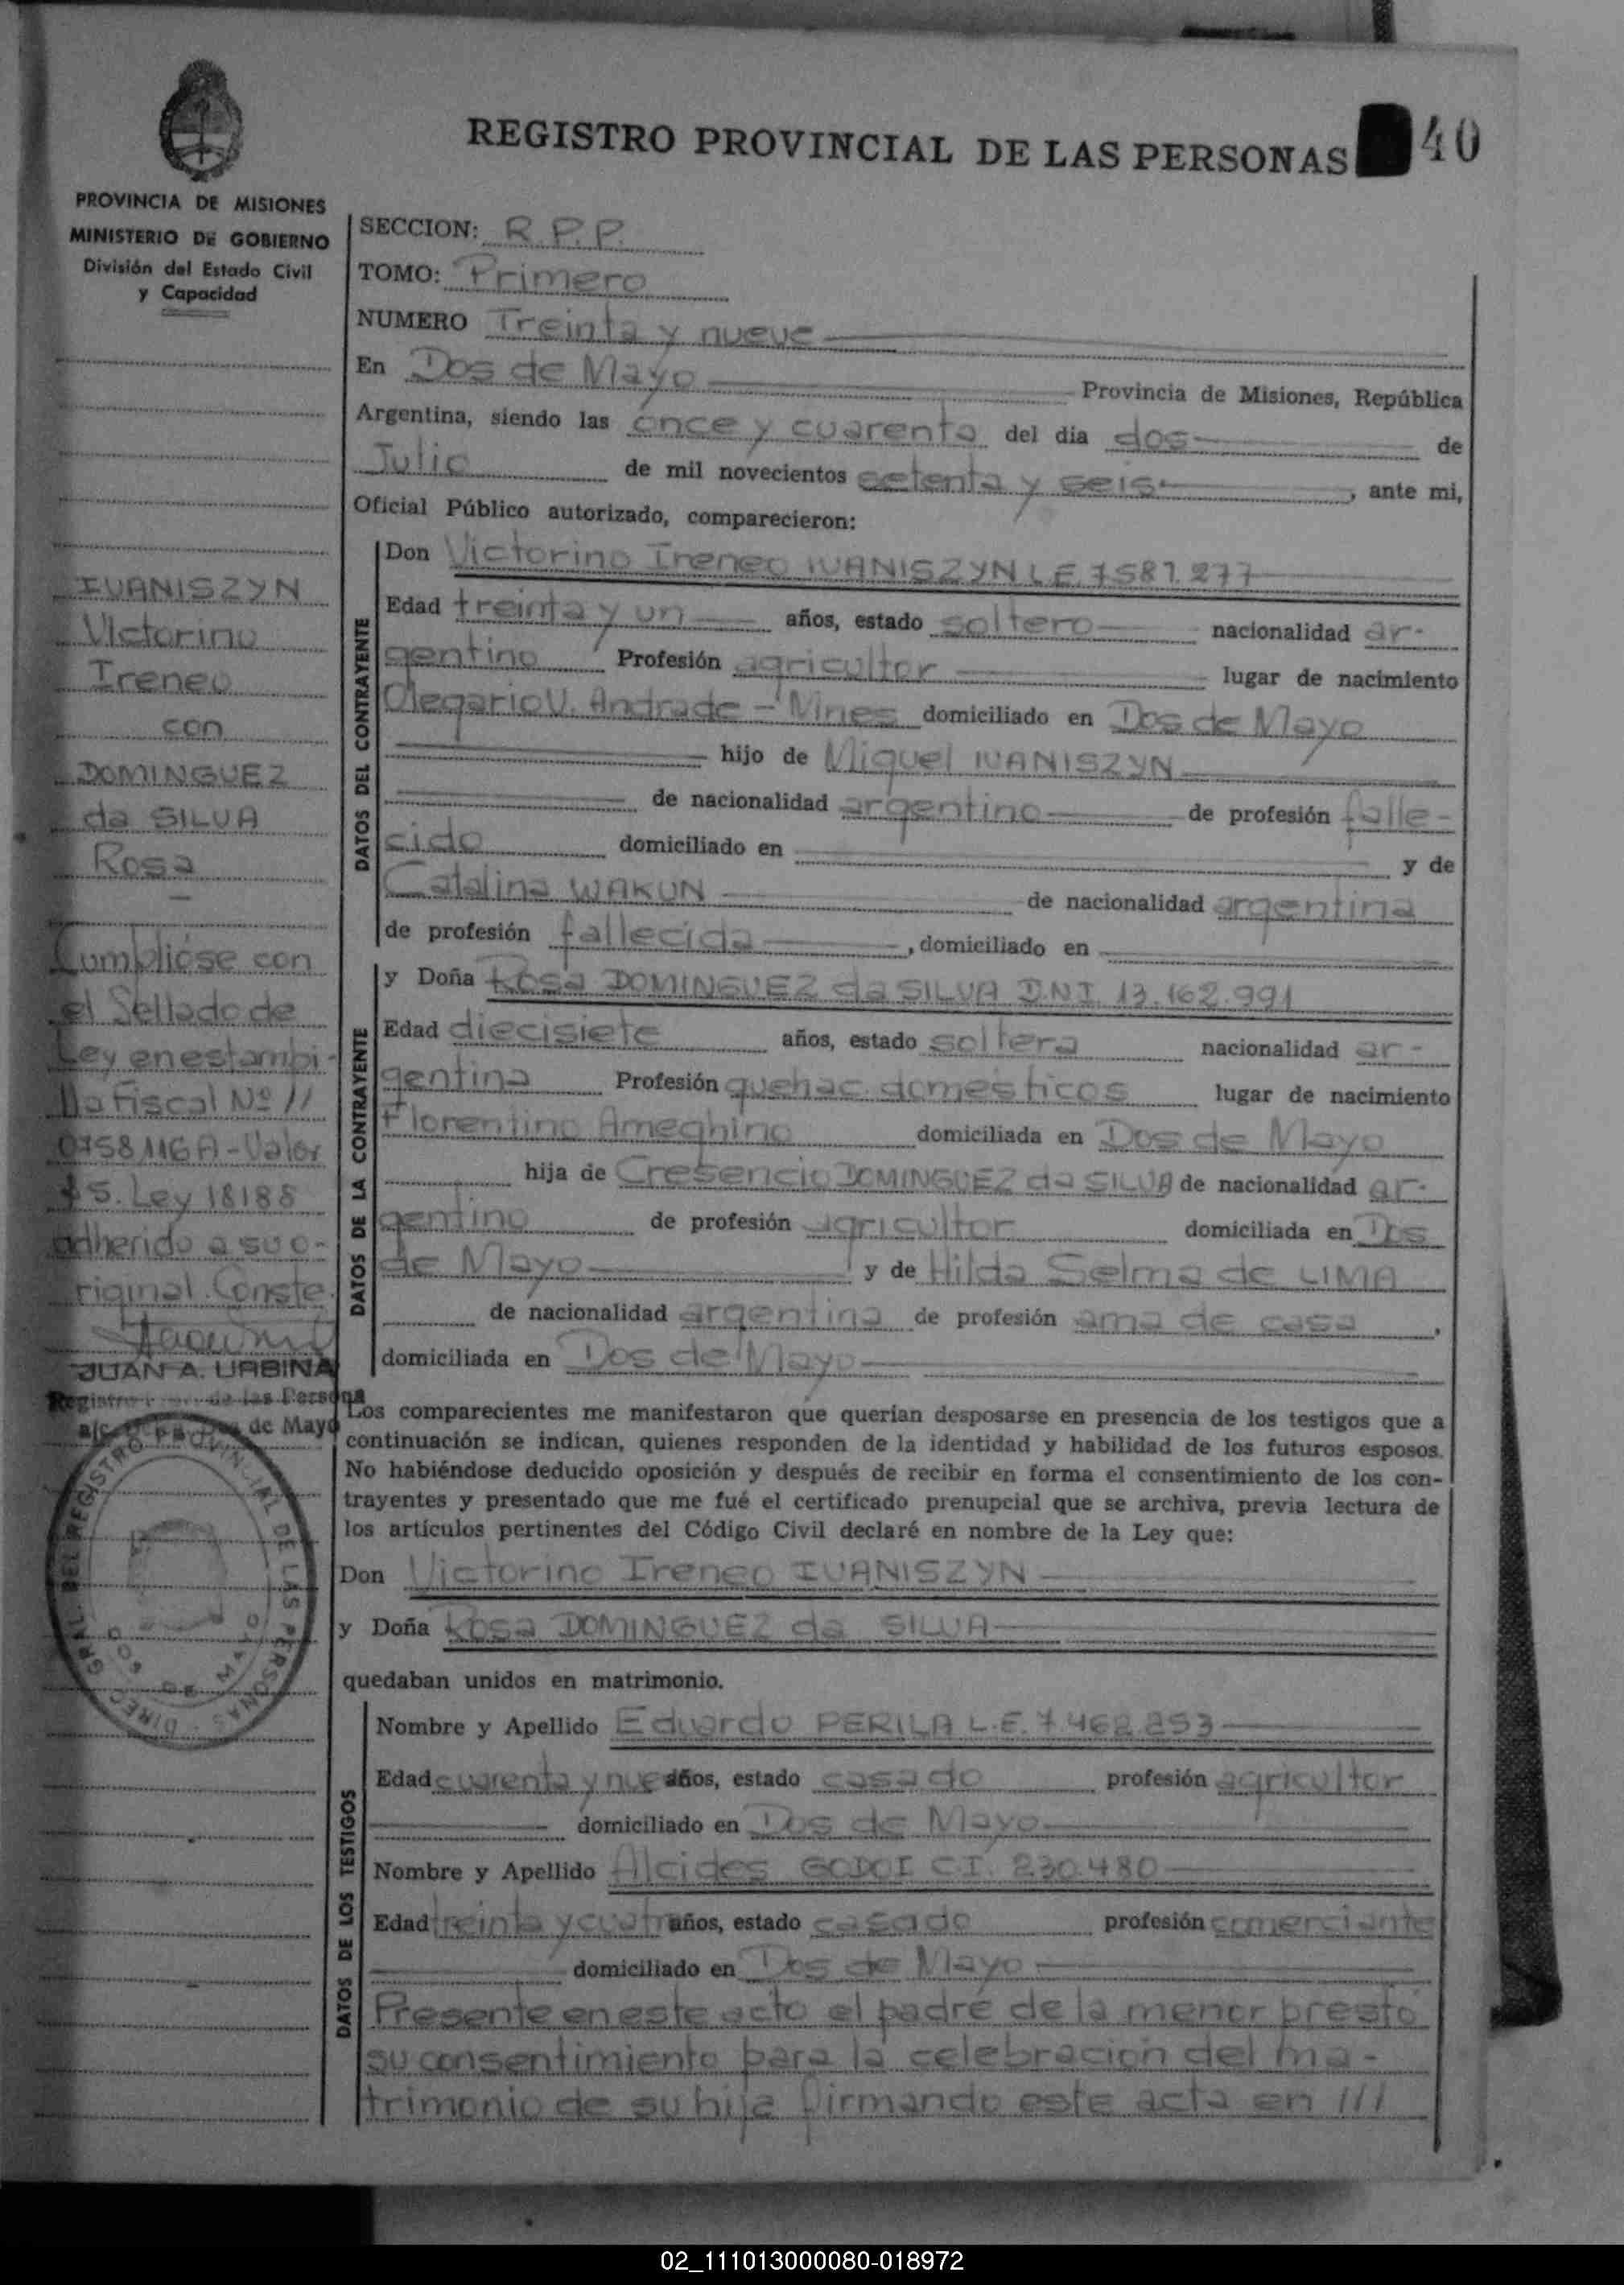 REGISTRO PROVINCIAL DE LAS PERSONAS 40
PROVINCIA DE MISIONES
MINISTERIO DE GOBIERNO
División del Estado Civil
y Capacidad
IVANISZYN
Victorino
Ireneo
con
DOMINGUEZ
da SILVA
Rosa
Cumplióse con
el Sellado de
Ley en estampi-
lla Fiscal Nº 11
0758116A - Valor
$5. Ley 18188
adherido a su o-
riginal. Conste.
JUAN A. URBINA
de las Persona
de Mayo
DIREC. GRAL. DEL REGISTRO PROVINCIAL DE LAS PERSONAS
DOS DE MAYO
SECCION: R.P.P.
TOMO: Primero
NUMERO Treinta y nueve
En Dos de Mayo Provincia de Misiones, República
Argentina, siendo las once y cuarenta del dia dos de
Julio de mil novecientos setenta y seis, ante mi,
Oficial Público autorizado, comparecieron:
DATOS DEL CONTRAYENTE
Don Victorino Ireneo IVANISZYN L.E. 7.587.277
Edad treinta y un años, estado soltero nacionalidad ar-
gentino Profesión agricultor lugar de nacimiento
Olegario V. Andrade - Mnes domiciliado en Dos de Mayo
hijo de Miguel IVANISZYN
de nacionalidad argentino de profesión falle-
cido domiciliado en y de
Catalina WAKUN de nacionalidad argentina
de profesión fallecida, domiciliado en
DATOS DE LA CONTRAYENTE
y Doña Rosa DOMINGUEZ da SILVA D.N.I. 13.162.991
Edad diecisiete años, estado soltera nacionalidad ar-
gentina Profesión quehac. domésticos lugar de nacimiento
Florentino Ameghino domiciliada en Dos de Mayo
hija de Cresencio DOMINGUEZ da SILVA de nacionalidad ar-
gentino de profesión agricultor domiciliada en Dos
de Mayo y de Hilda Selma de LIMA
de nacionalidad argentina de profesión ama de casa,
domiciliada en Dos de Mayo
Los comparecientes me manifestaron que querian desposarse en presencia de los testigos que a
continuación se indican, quienes responden de la identidad y habilidad de los futuros esposos.
No habiéndose deducido oposición y después de recibir en forma el consentimiento de los con-
trayentes y presentado que me fué el certificado prenupcial que se archiva, previa lectura de
los artículos pertinentes del Código Civil declaré en nombre de la Ley que:
Don Victorino Ireneo IVANISZYN
y Doña Rosa DOMINGUEZ da SILVA
quedaban unidos en matrimonio.
DATOS DE LOS TESTIGOS
Nombre y Apellido Eduardo PERILA L.E. 7.462.253
Edad cuarenta y nueve años, estado casado profesión agricultor
domiciliado en Dos de Mayo
Nombre y Apellido Alcides GODOI C.I. 230.480
Edad treinta y cuatro años, estado casado profesión comerciante
domiciliado en Dos de Mayo
Presente en este acto el padre de la menor prestó
su consentimiento para la celebración del ma-
trimonio de su hija firmando este acta en ///
02_111013000080-018972